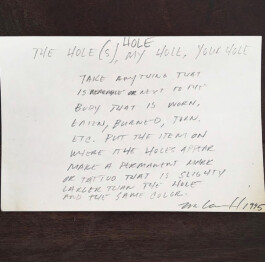 THE HOLE(S), MY HOLE, YOUR HOLE
HOLE
TAKE ANYTHING THAT
IS WEARABLE OR NEXT TO THE
BODY THAT IS WORN,
EATEN, BURNED, TORN,
ETC. PUT THE ITEM ON
WHERE THE HOLES APPEAR
MAKE A PERMANENT MARK
OR TATTOO THAT IS SLIGHTY
LARGER THAN THE HOLE
AND THE SAME COLOR.
1995